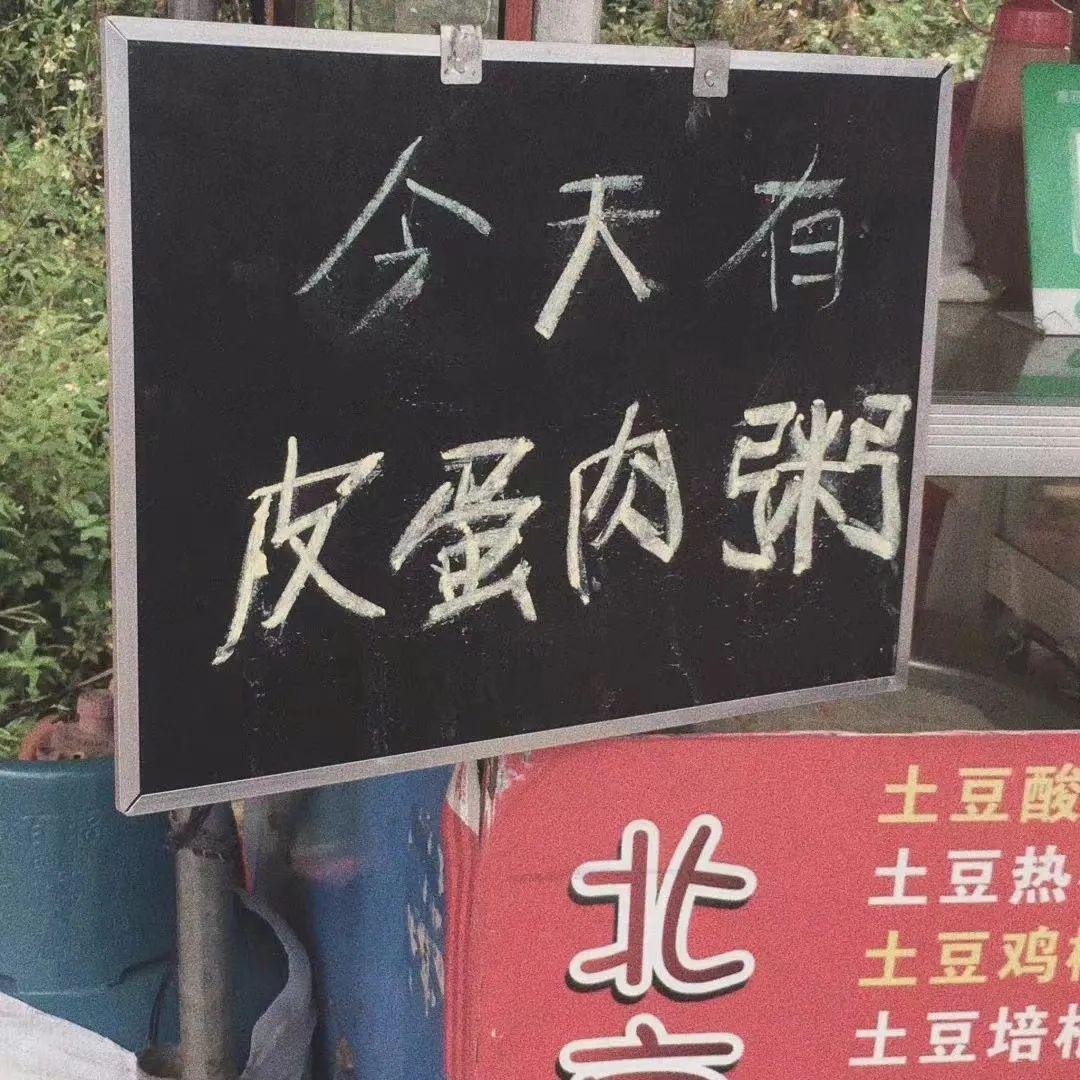 今天有
皮蛋肉粥
土豆酸
土豆热
土豆鸡
土豆培
北